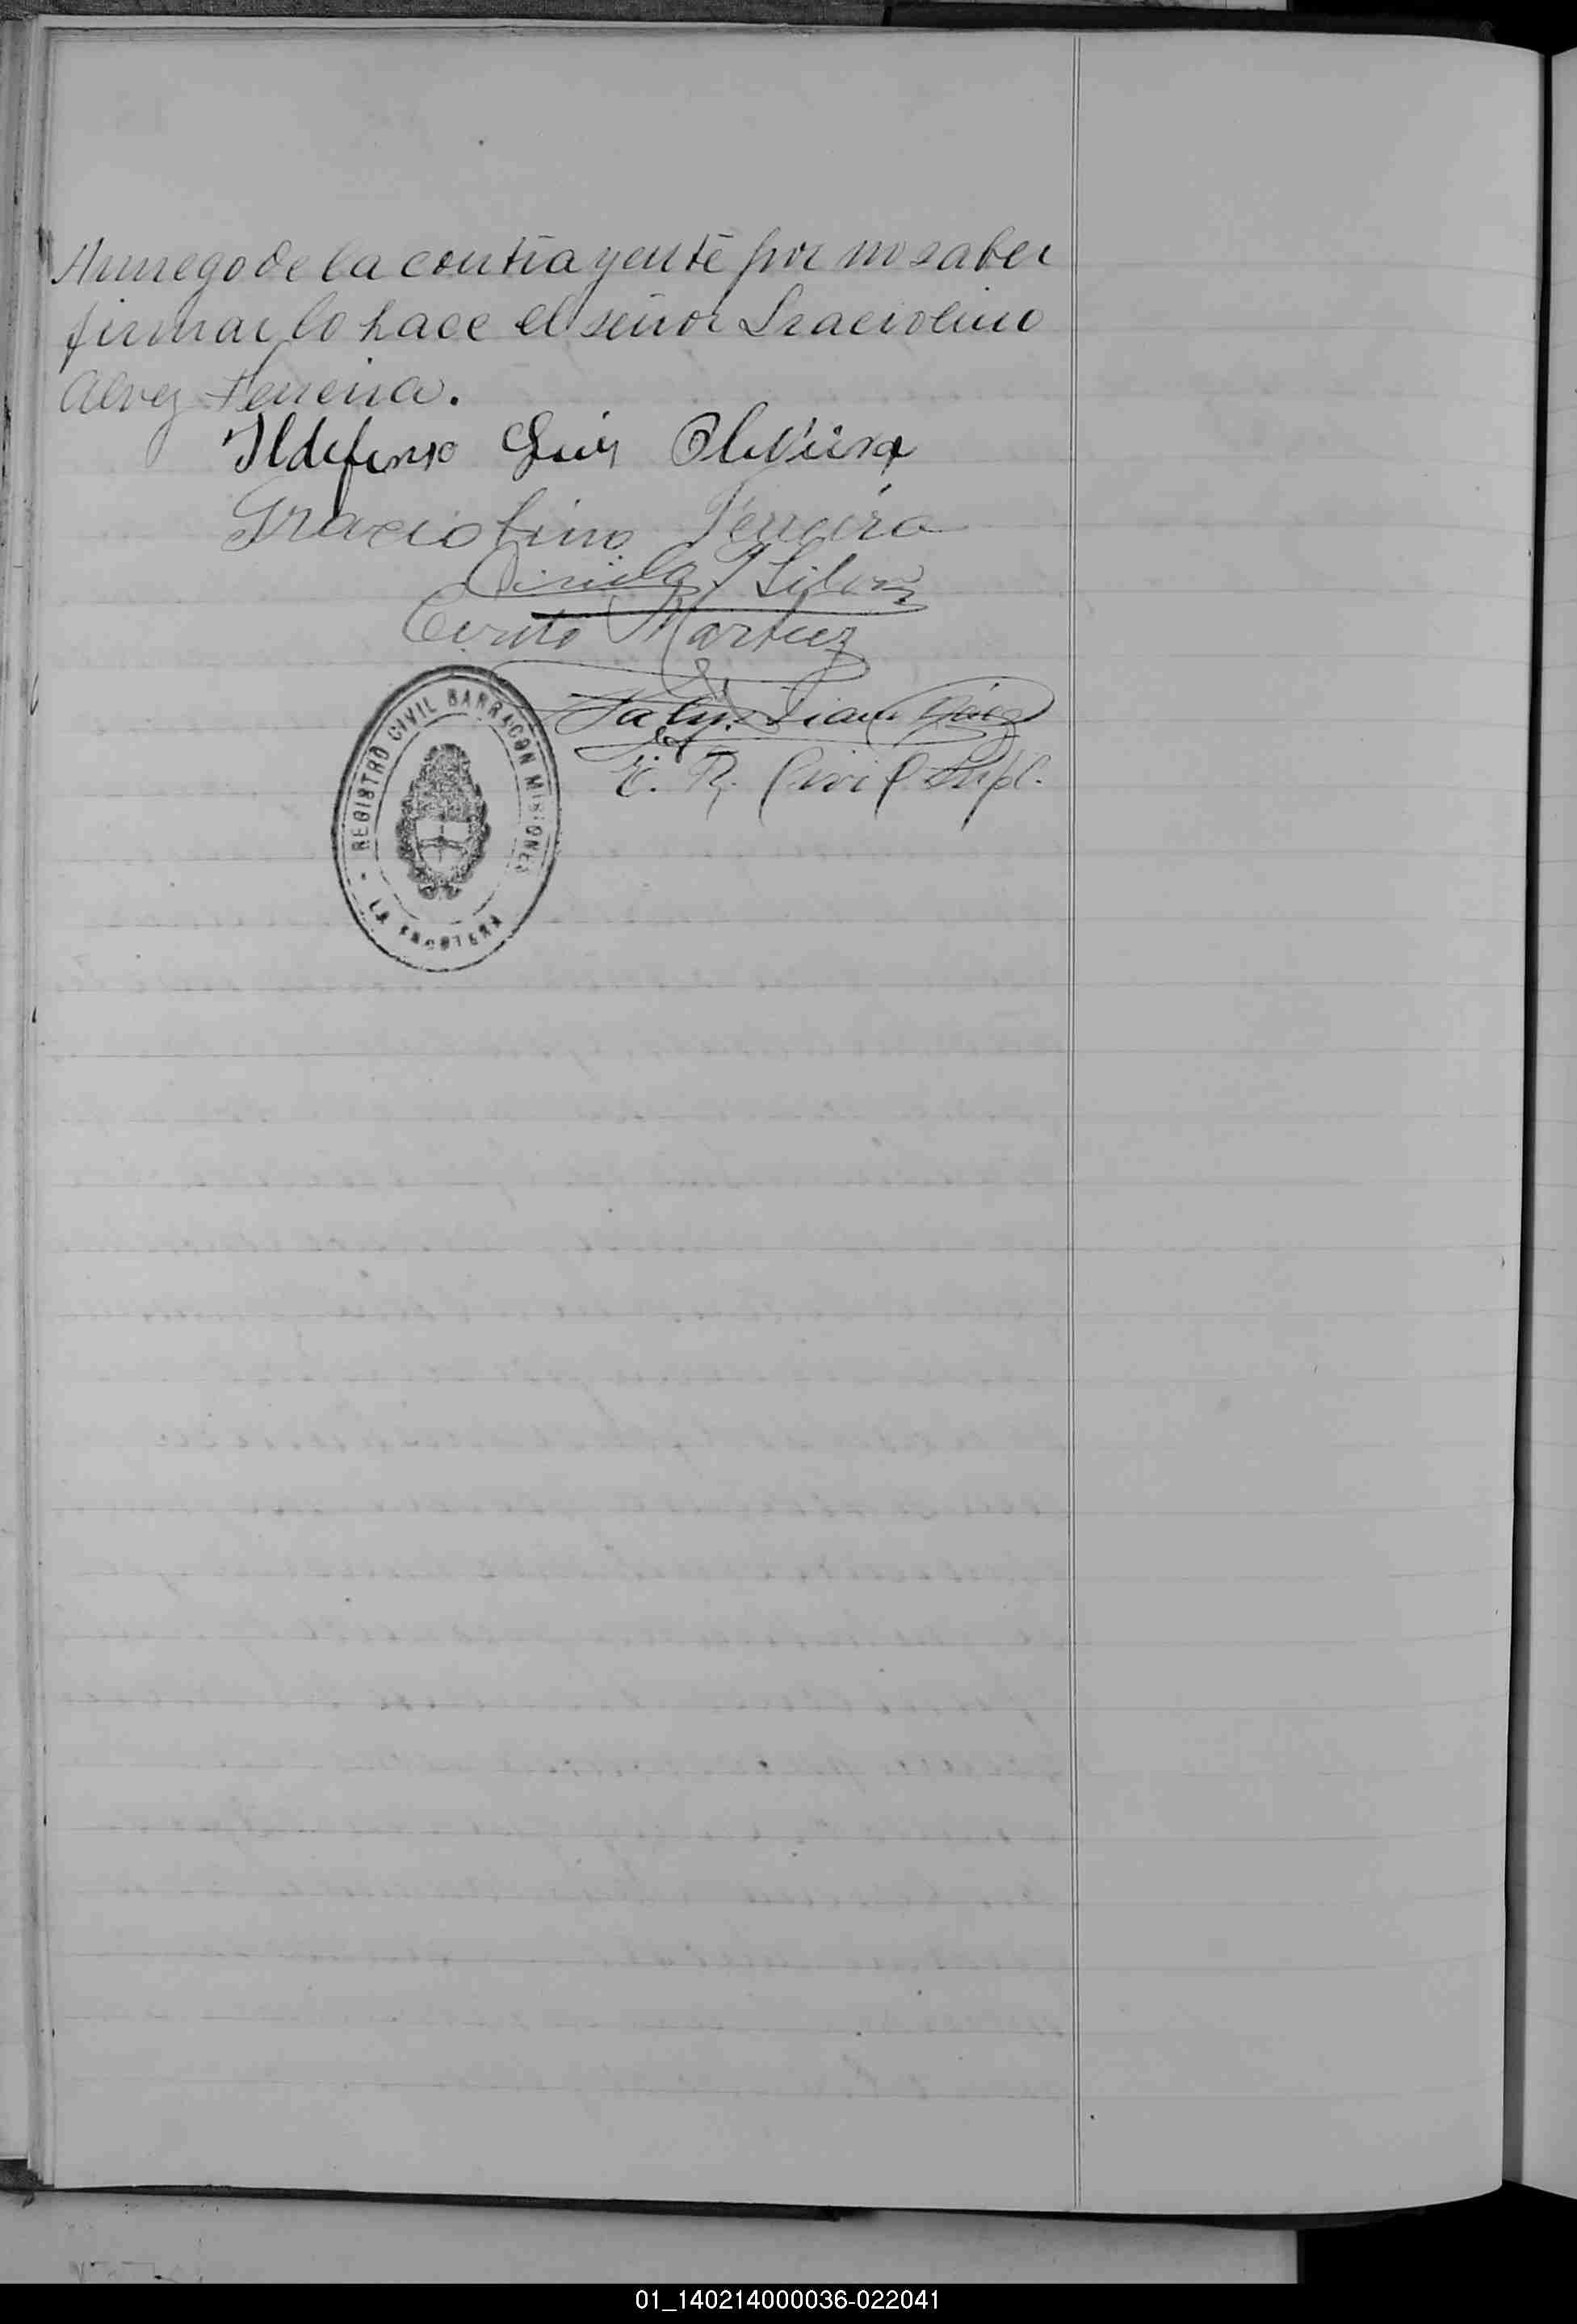 A ruego de la contrayente por no saber
firmar lo hace el señor Graciolino
Alvez Ferreira.
Ildefonso Luis Oliveira
Graciolino Ferreira
Silva
Cirilo Martinez
E. R. Civil Supl.
REGISTRO CIVIL BARRACON MISIONES
01_140214000036-022041